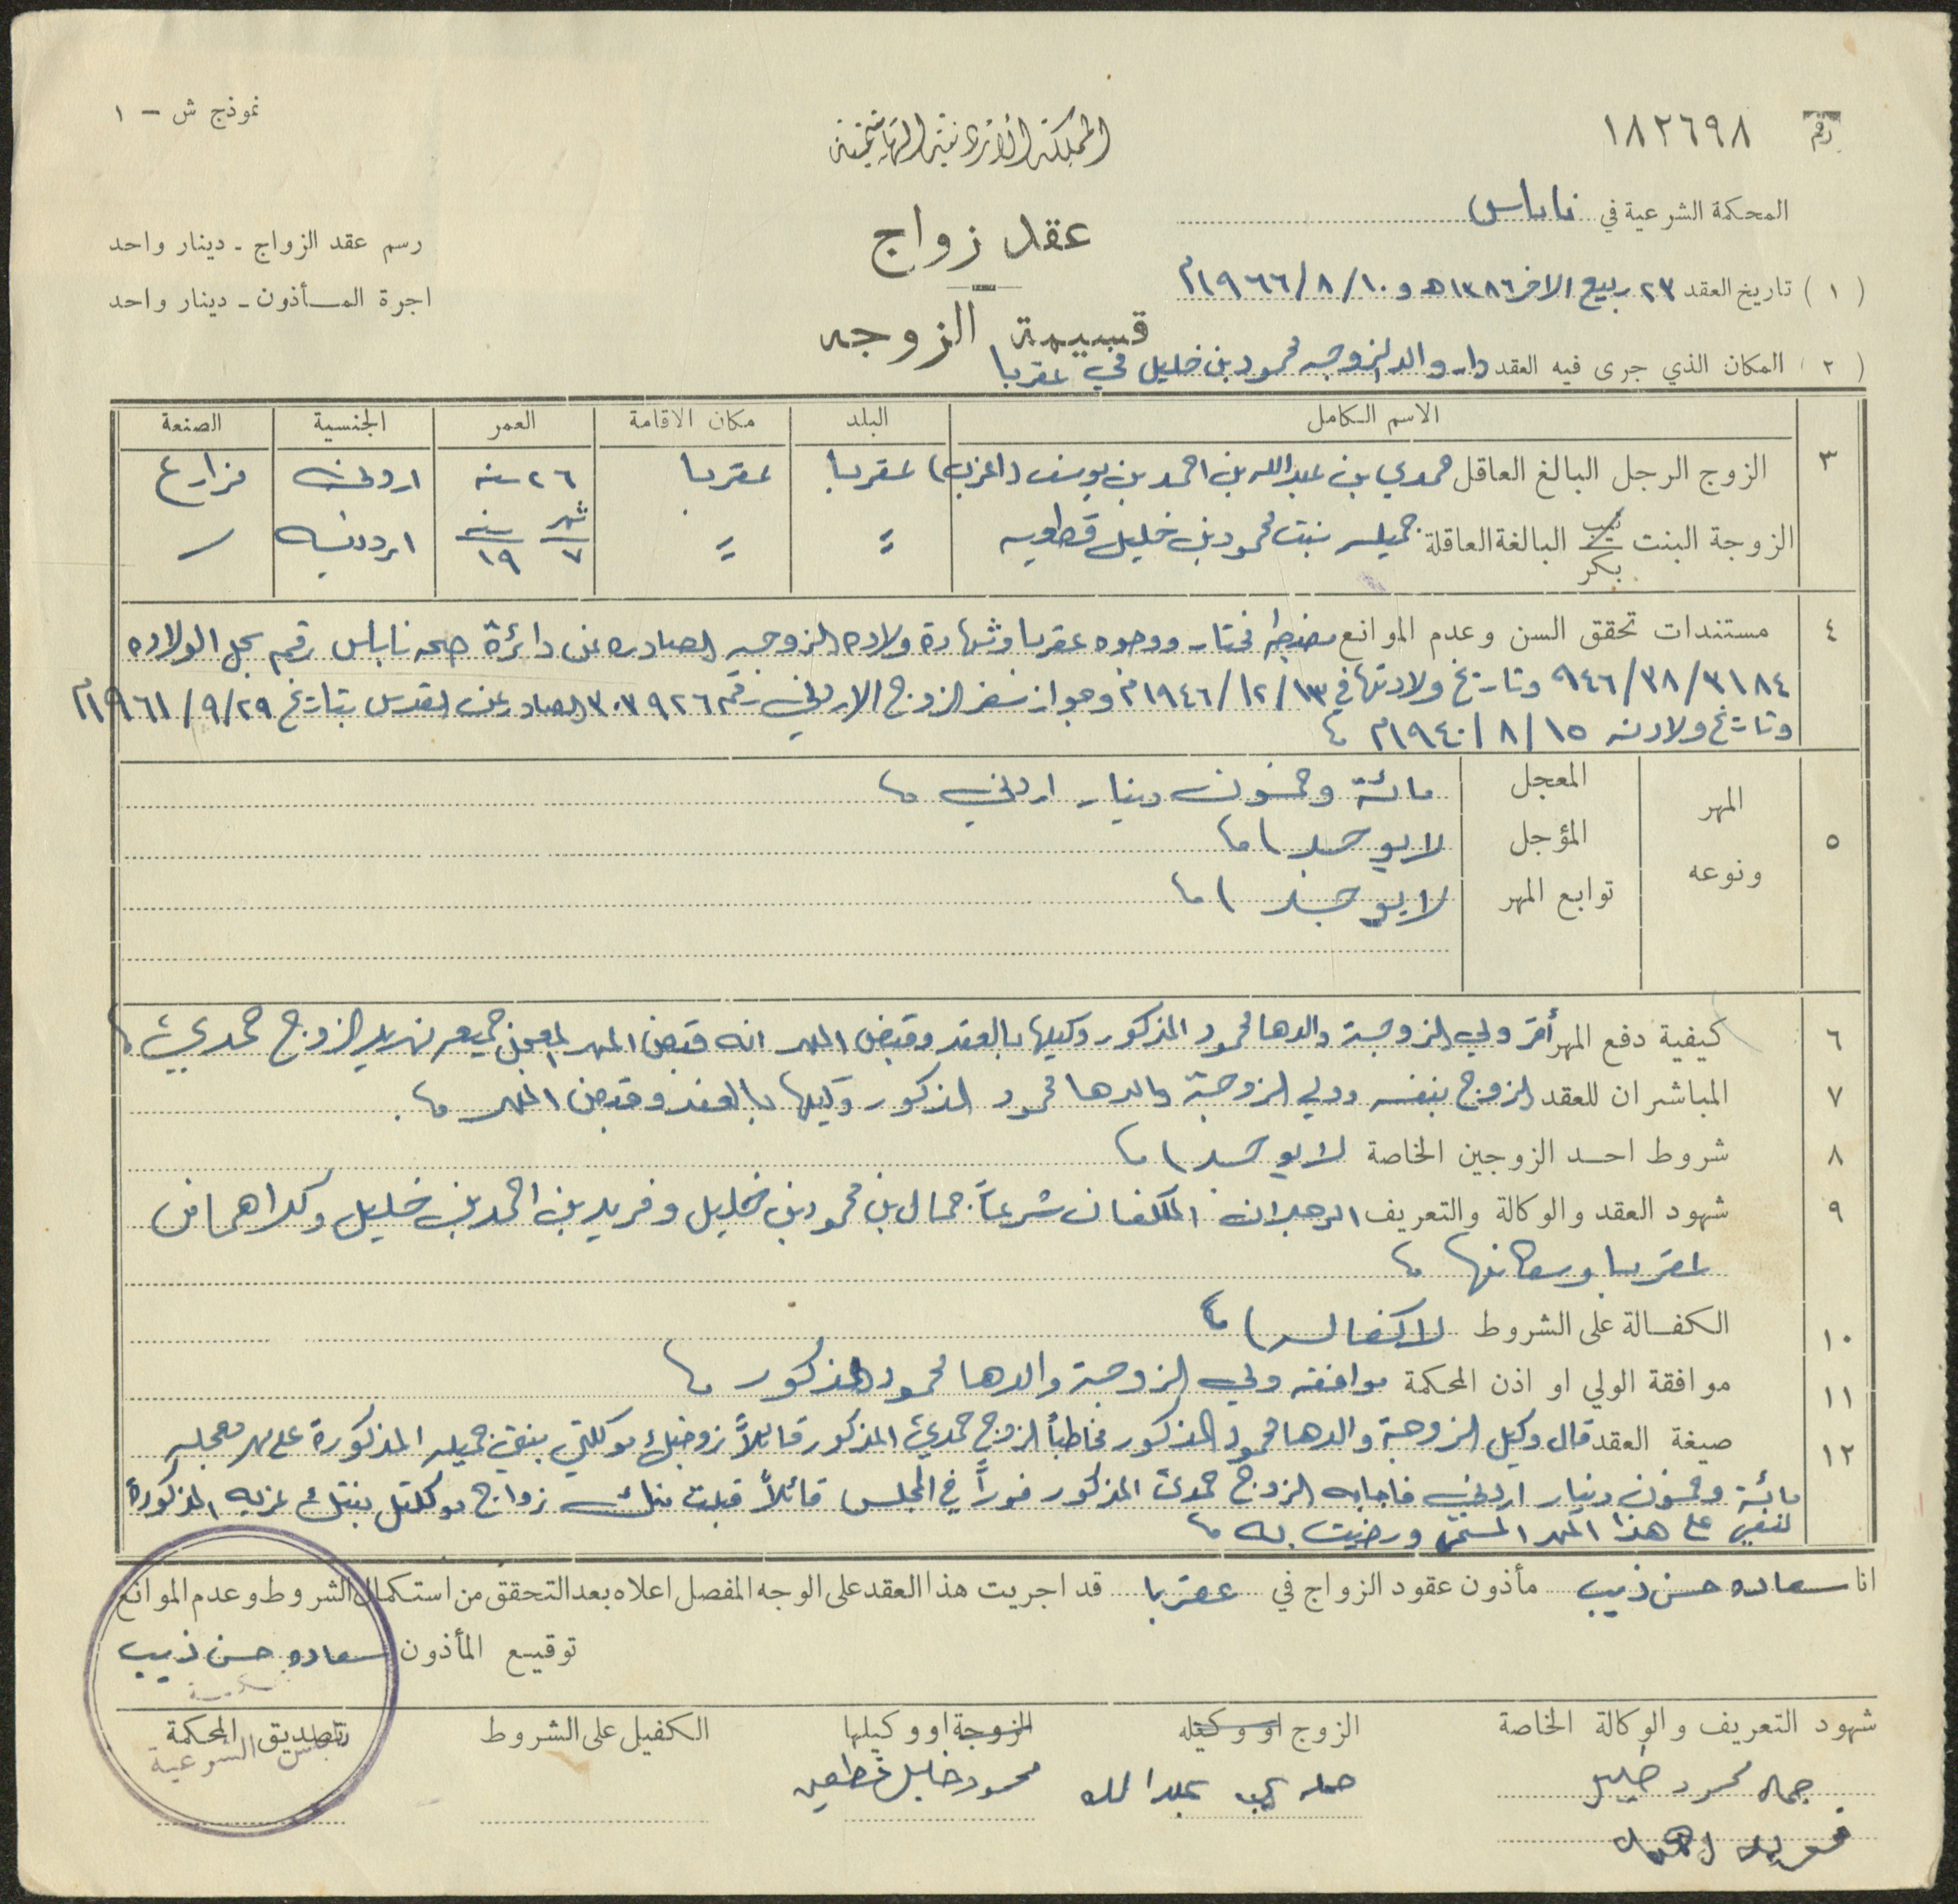 رقم ١٨٢٦٩٨
المملكة الأردنية الهاشمية
نموذج ش - ١
المحكمة الشرعية في نابلس
عقد زواج
رسم عقد الزواج - دينار واحد
(١) تاريخ العقد ٢٣ ربيع الاخر ١٣٨٦ هـ و ١٠/٨/١٩٦٦م
اجرة المأذون - دينار واحد
قسيمة الزوجه
(٢) المكان الذي جرى فيه العقد دار والد الزوجه محمود بن خليل في عقربا
الاسم الكامل البلد مكان الاقامة العمر الجنسية الصنعة
٣ الزوج الرجل البالغ العاقل حمدي بن عبدالله بن احمد بن يوسف (اعزب) عقربا عقربا ٢٦ سنه اردني مزارع
الزوجة البنت ثيب بكر البالغة العاقلة جميله بنت محمود بن خليل قطاويه = = شهر ٧ سنه ١٩ اردنيه -
٤ مستندات تحقق السن وعدم الموانع مضبطة مختار ووجوه عقربا وشهادة ولادة الزوجه الصادره عن دائرة صحه نابلس رقم سجل الولاده
٣١٨٤/٣٨/٩٤٦ وتاريخ ولادتها في ١٣/١٢/١٩٤٦م وجواز سفر الزوج الاردني رقم ٣٠٣٩٢٦ الصادر عن القدس بتاريخ ٢٩/٩/١٩٦١م
وتاريخ ولادته ١٥/٨/١٩٤٠م
٥ المهر ونوعه
المعجل مائة وخمسون دينار اردني
المؤجل لا يوجد
توابع المهر لا يوجد
٦ كيفية دفع المهر أقر ولي الزوجة والدها محمود المذكور وكيلها بالعقد وقبض المهر انه قبض المهر المعجل جميعه من يد الزوج حمدي
٧ المباشران للعقد الزوج بنفسه وولي الزوجة والدها محمود المذكور وكيلها بالعقد وقبض المهر
٨ شروط احد الزوجين الخاصة لا يوجد
٩ شهود العقد والوكالة والتعريف الرجلان المكلفان شرعاً جمال بن محمود بن خليل وفريد بن احمد بن خليل وكلاهما من
عقربا وسكانها
١٠ الكفالة على الشروط لا كفاله
١١ موافقة الولي او اذن المحكمة موافقه ولي الزوجة والدها محمود المذكور
١٢ صيغة العقد قال وكيل الزوجة والدها محمود المذكور مخاطباً الزوج حمدي المذكور قائلاً زوجتك موكلتي بنتي جميله المذكورة على مهر معجله
مائة وخمسون دينار اردني فاجابه الزوج حمدي المذكور فوراً في المجلس قائلاً قبلت منك زواج موكلتك بنتك المذكورة
لنفسي على هذا المهر المسمى ورضيت به
انا سعاده حسن ذيب مأذون عقود الزواج في عقربا قد اجريت هذا العقد على الوجه المفصل اعلاه بعد التحقق من استكمال الشروط وعدم الموانع
توقيع المأذون سعاده حسن ذيب
شهود التعريف والوكالة الخاصة الزوج او وكيله الزوجة او وكيلها الكفيل على الشروط تصديق المحكمة
الشرعية
جمال محمود خليل حمدي عبدالله محمود خليل
فريد احمد